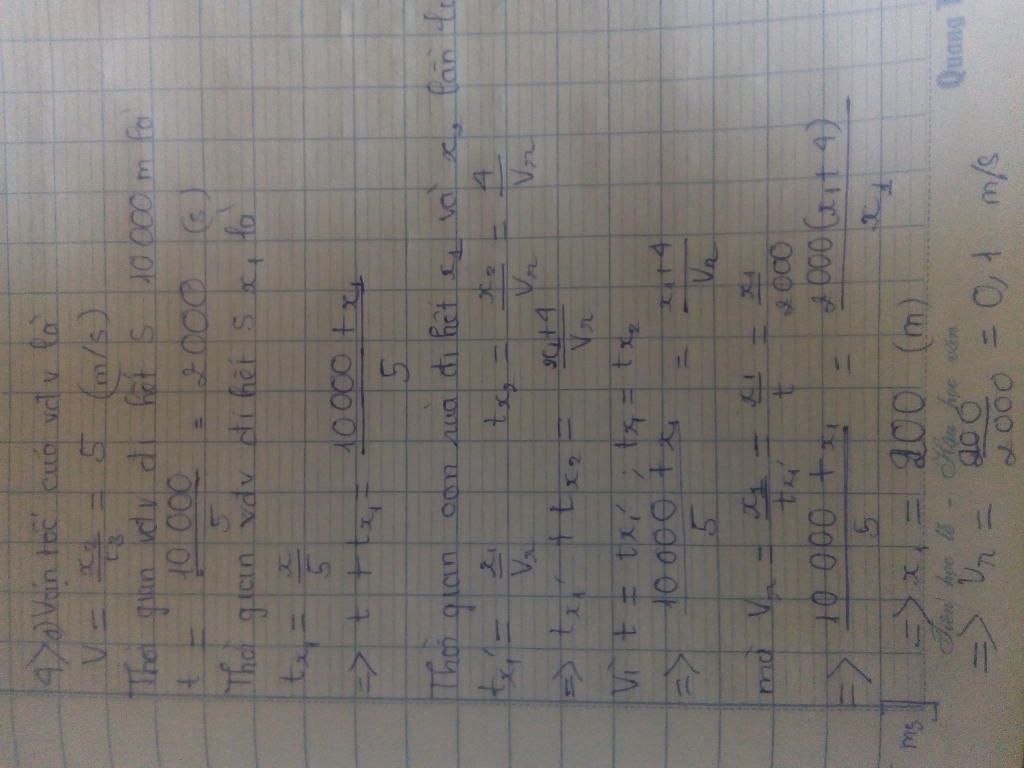 4>a) Vận tốc của vđv là
V = x₂/t₃ = 5 (m/s)
Thời gian vđv đi hết S 10 000 m là
t = 10 000/5 = 2000 (s)
Thời gian vđv đi hết S x₁ là
t x₁ = x/5
=> t + t x₁ = 10 000 + x₁/5
Thời gian con rùa đi hết x₁ và x₂ lần
t x₁' = x₁/Vr t x₂ = x₂/Vr = 4/Vr
=> t x₁' + t x₂ = x₁+4/Vr
Vì t = t x₁' ; t x₁ = t x₂
=> 10 000 + x₁/5 = x₁+4/Vr
mà Vr = x₁/t x₁' = x₁/t = x₁/2000
=> 10 000 + x₁/5 = 2000(x₁+4)/x₁
=> x₁ = 200 (m)
Tiên học lễ - Hậu học văn
=> Vr = 200/2000 = 0,1 m/s
Quang